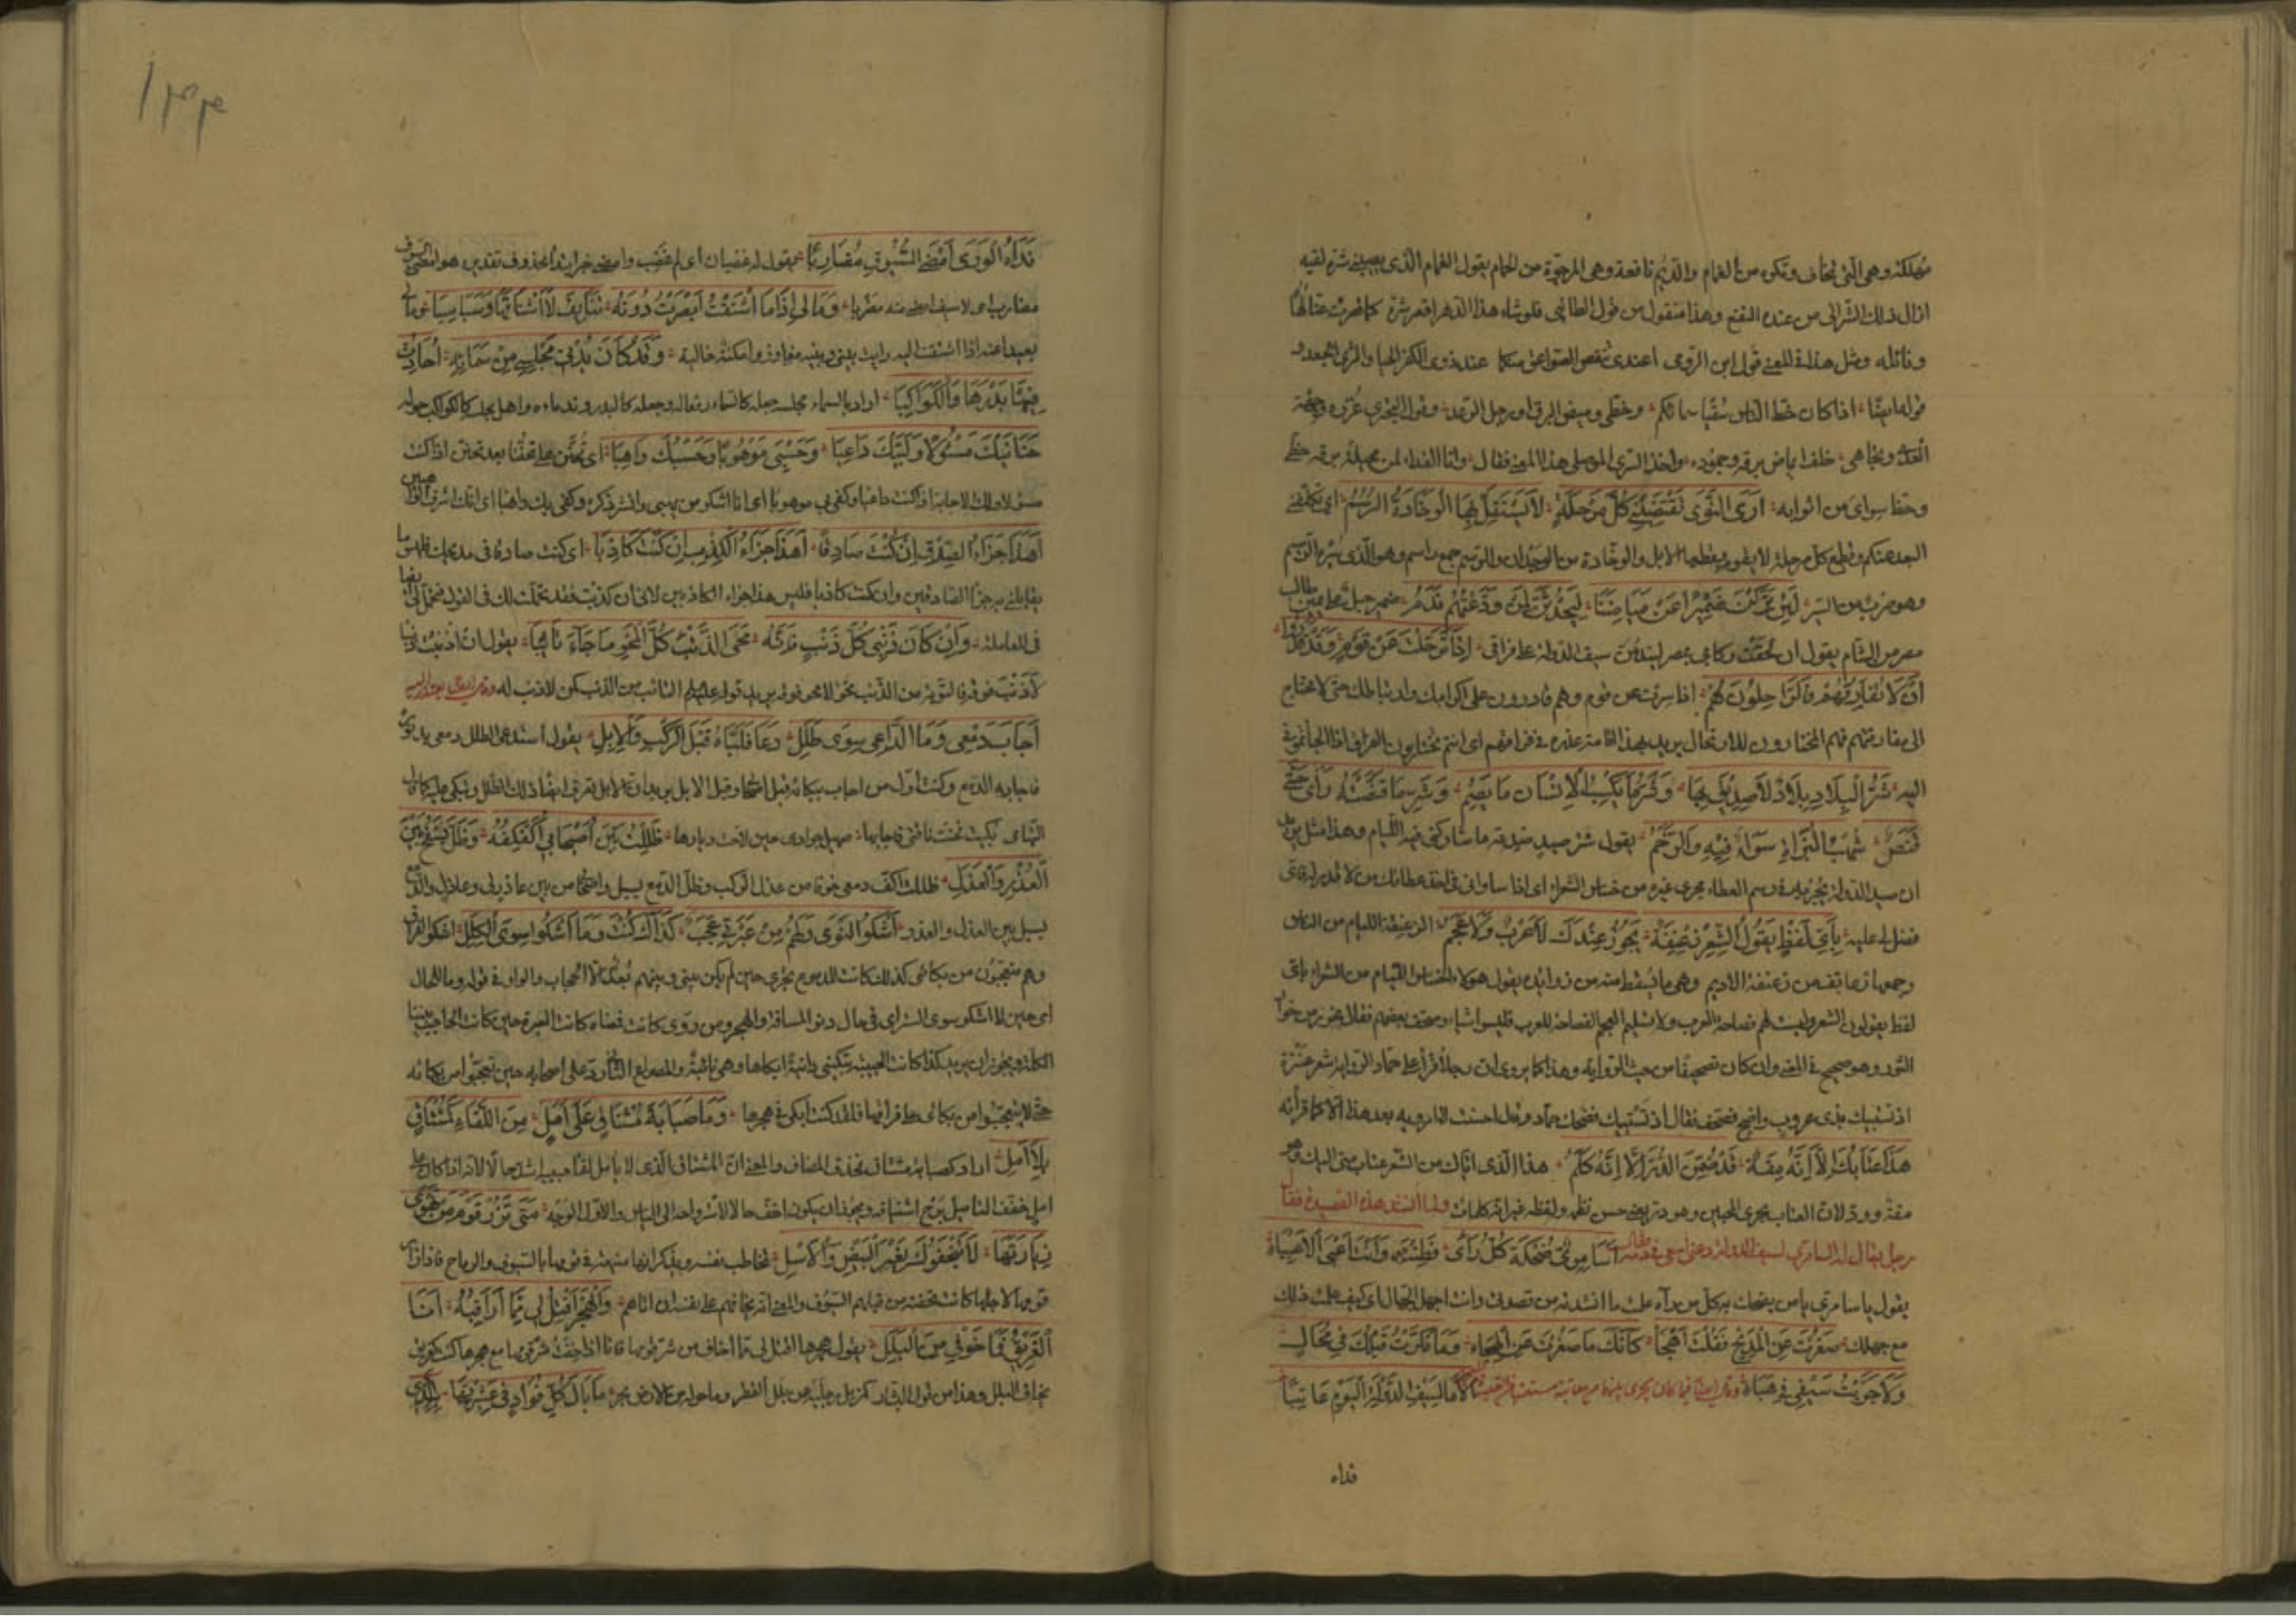 مهلكة وهي التي تخاف وتكره من الغمام والديم نافعة وهي المرجوة من الغمام يقول الغمام الذي يصيبني شره ليته
ازال ذلك الشر الى من عنده النفع وهذا منقول من قول الطائي فلو شاء هذا الدهر اقصر شره كما قصرت عنا لهاه
ونائله ومثل هذا في المعنى قول ابن الرومي اعندي تنقض الصواعق منكما وعند ذوي الكفر الحيا والثرى الجعد و
قوله ايضا اذا كان حظ الناس سقيا سمائكم وحظي وميض البرق او زجل الرعد وقول البحتري
خلفا اياض برقه وجوده واخذ السري الموصلي هذا المعنى فقال وانا الفداء لمن مخيلة برقه حظي
وحظ سواي من انوائه اَرَى النَّوَى تَقْتَضِينِي كُلَّ مَرْحَلَةٍ لاَ تَسْتَقِلُّ بِهَا الْوَخَّادَةُ الرُّسُمُ اي تكلفني
البعد عنكم وقطع كل مرحلة لا يقوم بقطعها الابل والوخادة من الوخدان والرسم جمع راسم وهو الذي يسير الرسيم
وهو ضرب من السير لَئِنْ تَرَكْنَ ضُمَيْرًا عَنْ مَيَامِنِنَا لَيَحْدُثَنَّ لِمَنْ وَدَّعْتُهُمْ نَدَمُ ضمير جبل على يمين طالب
مصر من الشام يقول ان لحقت ركابي بمصر ليندمن سيف الدولة على فراقي اِذَا تَرَحَّلْتَ عَنْ قَوْمٍ وَقَدْ قَدَرُوا
اَنْ لَا تُفَارِقَهُمْ فَالرَّاحِلُونَ هُمُ اذا سرت عن قوم وهم قادرون على اكرامك وارتباطك حتى لا تحتاج
الى مفارقتهم فهم المختارون للارتحال يريد بهذا اقامة عذره في فراقهم اي انتم تختارون الفراق اذا الجأتموني
اليه شَرُّ الْبِلَادِ بِلَادٌ لَا صَدِيقَ بِهَا وَشَرُّ مَا يَكْسِبُ الْاِنْسَانُ مَا يَصِمُ وَشَرُّ مَا قَنَصَتْهُ رَاحَتِي
قَنَصٌ شُهْبُ الْبُزَاةِ سَوَاءٌ فِيهِ وَالرَّخَمُ يقول شر صيد صدته ما شاركني فيه اللئام وهذا مثل يريد
ان سيف الدولة يجريه في رسم العطاء مجرى غيره من خساس الشعراء اي اذا ساواني في اخذ عطائك من لا قدر له فاي
فضل لي عليه بِاَيِّ لَفْظٍ يَقُولُ الشِّعْرَ زِعْنِفَةٌ يَجُوزُ عِنْدَكَ لَا عُرْبٌ وَلَا عَجَمُ الزعنفة اللئام من الناس
وجمعها زعانف من زعنفة الاديم وهي ما يسقط منه من زوائده يقول هؤلاء الخساس اللئام من الشعراء باي
لفظ يقولون الشعر وليست لهم فصاحة العرب ولا تسليم العجم الفصاحة للعرب فليسوا شيئا وصحف بعضهم فقال يخور من خوار
الثور وهو صحيح في المعنى وان كان تصحيفا من حيث الرواية وهذا كما يروى ان رجلا قرأ على حماد الراوية شعر عنترة
اذ تستبيك بذي غروب واضح فصحف فقال اذ تستنيك فضحك حماد وقال احسنت لا ارويه بعد هذا الا كما قرأته
هَذَا عِتَابُكَ اِلَّا اَنَّهُ مِقَةٌ قَدْ ضُمِّنَ الدُّرَّ اِلَّا اَنَّهُ كَلِمُ هذا الذي اتاك من الشعر عتاب مني اليك وهو
مقة وود لان العتاب يجري بين المحبين وهو در يعني حسن نظمه ولفظه غير انه كلمات ولما انشد هذه القصيدة فقال
رجل يقال له السامري لسيف الدولة دعني اسعى في دمه فقال اَسَامِرِيُّ ضُحْكَةَ كُلِّ رَاءٍ فَطِنْتَ وَاَنْتَ اَغْبَى الْاَغْبِيَاءِ
يقول يا سامري يا من يضحك به كل من رآه علمت ما انشدته من تصديق وانت اجهل الجهال اي كيف علمت ذلك
مع جهلك صَغُرْتَ عَنِ الْمَدِيحِ فَقُلْتَ اُهْجَى كَاَنَّكَ مَا صَغُرْتَ عَنِ الْهِجَاءِ وَمَا فَكَّرْتُ قَبْلَكَ فِي مُحَالٍ
وَلَا جَرَّبْتُ سَيْفِي فِي هَبَاءِ وقال ايضا فيما كان يجري بينهما من معاتبة اَلَا مَا لِسَيْفِ الدَّوْلَةِ الْيَوْمَ عَاتِبًا
فداه
١٣٤
فَدَاهُ الْوَرَى اَمْضَى السُّيُوفِ مَضَارِبًا يقول له غضبان اي لم غضب وامضى خبر ابتداء محذوف تقديره هو امضى السيوف
مضارب اي لا سيف امضى منه مضربا وَمَا لِي اِذَا مَا اشْتَقْتُ اَبْصَرْتُ دُونَهُ تَنَائِفَ لَا اَشْتَاقُهَا وَسَبَاسِبَا يقول ما لي
بعيدا عنه اذا اشتقت اليه رايت بيني وبينه مفاوز وامكنة خالية وَقَدْ كَانَ يُدْنِي مَجْلِسِي مِنْ سَمَائِهِ اُحَادِثُ
فِيهَا بَدْرَهَا وَالْكَوَاكِبَا اراد بالسماء مجلسه جعله كالسماء رفعة له وجعله كالبدر وندماءه واهل مجلسه كالكواكب حوله
حَنَانَيْكَ مَسْئُولًا وَلَبَّيْكَ دَاعِيَا وَحَسْبِي مَوْهُوبًا وَحَسْبُكَ وَاهِبَا اي تحنن علي تحننا بعد تحنن اذا كنت
مسئولا ولك الاجابة اذا كنت داعيا وكفى بي موهوبا اي انا اشكر من يهبني وانشر ذكره وكفى بك واهبا اي انك اشرف الواهبين
اَهَذَا جَزَاءُ الصِّدْقِ اِنْ كُنْتُ صَادِقًا اَهَذَا جَزَاءُ الْكِذْبِ اِنْ كُنْتُ كَاذِبَا اي ان كنت صادقا في مديحك فليس ما
تعاملني به جزاء الصادقين وان كنت كاذبا فليس هذا جزاء الكاذبين لاني ان كذبت فقد تجملت لك في القول فتجمل لي ايضا
في المعاملة وَاِنْ كَانَ ذَنْبِي كُلَّ ذَنْبٍ فَاِنَّهُ مَحَى الذَّنْبَ كُلَّ الْمَحْوِ مَنْ جَاءَ تَائِبَا يقول ان اذنبت ذنبا
لا ذنب فوقه فالتوبة من الذنب تمحو لا محو فوقه يريد قوله عليه السلام التائب من الذنب كمن لا ذنب له وقال ايضا يعتذر اليه
اَجَابَ دَمْعِي وَمَا الدَّاعِي سِوَى طَلَلِ دَعَا فَلَبَّاهُ قَبْلَ الرَّكْبِ وَالْاِبِلِ يقول استدعى الطلل دمعي بدثوره
فاجابه الدمع وكنت اول من اجاب ببكائه قبل اصحابي وقبل الابل يريد ان الابل تعرف ايضا ذلك الطلل وتبكي عليه كما قال
التهامي بكيت فحنت ناقتي فاجابها صهيل جوادي حين لاحت ديارها ظَلِلْتُ بَيْنَ اُصَيْحَابِي اُكَفْكِفُهُ وَظَلَّ يَسْفَحُ بَيْنَ
الْعُذْرِ وَالْعَذَلِ ظللت اكف دمعي خوفا من عذل الركب وظل الدمع يسيل واصحابي من بين عاذر لي وعاذل والدمع
يسيل بين العذل والعذر اَشْكُو النَّوَى وَلَهُمْ مِنْ عَبْرَتِي عَجَبٌ كَذَاكَ كُنْتُ وَمَا اَشْكُو سِوَى الْكِلَلِ اشكو الفراق
وهم متعجبون من بكائي كذلك كانت الدموع تجري حين لم يكن بيني وبينهم بعد الا الحجاب والواو في قوله وما للحال
اي حين لا اشكو سوى الستر اي في حال دنو المسافة والهجر ومن روى كانت فمعناه كانت العبرة حين كانت الحاجب بيننا
الكلة ويجوز ان يريد كذا كانت الحبيبة تبكيني دانية ابكاها وهي نائية والمصراع الثاني رد على اصحابه حين تعجبوا من بكائه
حتى لا يتعجبوا من بكائي على فراقها فلقد كنت ابكي في هجرها وَمَا صَبَابَةُ مُشْتَاقٍ عَلَى اَمَلٍ مِنَ اللِّقَاءِ كَمُشْتَاقٍ
بِلَا اَمَلِ اراد كصبابة مشتاق فحذف المضاف والمعنى ان المشتاق الذي لا يامل لقاء حبيبه اشد حالا لانه اذا كان على
امل خفف التاميل برح اشتياقه ويجوز ان يكون اخف حالا لاستراحة الى الياس والاول الوجه مَتَى تَزُرْ قَوْمَ مَنْ تَهْوَى
زِيَارَتَهَا لَا يُتْحِفُوكَ بِغَيْرِ الْبِيضِ وَالْاَسَلِ يخاطب نفسه ويذكر انها منيعة في قومها بالسيوف والرماح فاذا زار
قومها لاجلها كانت تحفته من قبلهم السيوف والمعنى انه يخافهم على نفسه ان اتاهم وَالْهَجْرُ اَقْتَلُ لِي مِمَّا اُرَاقِبُهُ اَنَا
الْغَرِيقُ فَمَا خَوْفِي مِنَ الْبَلَلِ يقول هجرها اقتل لي مما اخاف من شر قومها فانا اذا خفت شر قومها مع هجرها كنت كغريق
يخاف البلل وهذا من قول بشار كمزيل رجليه عن بلل القطر وما حوله من الارض بحر مَا بَالُ كُلِّ فُؤَادٍ فِي عَشِيرَتِهَا بِهِ الَّذِي